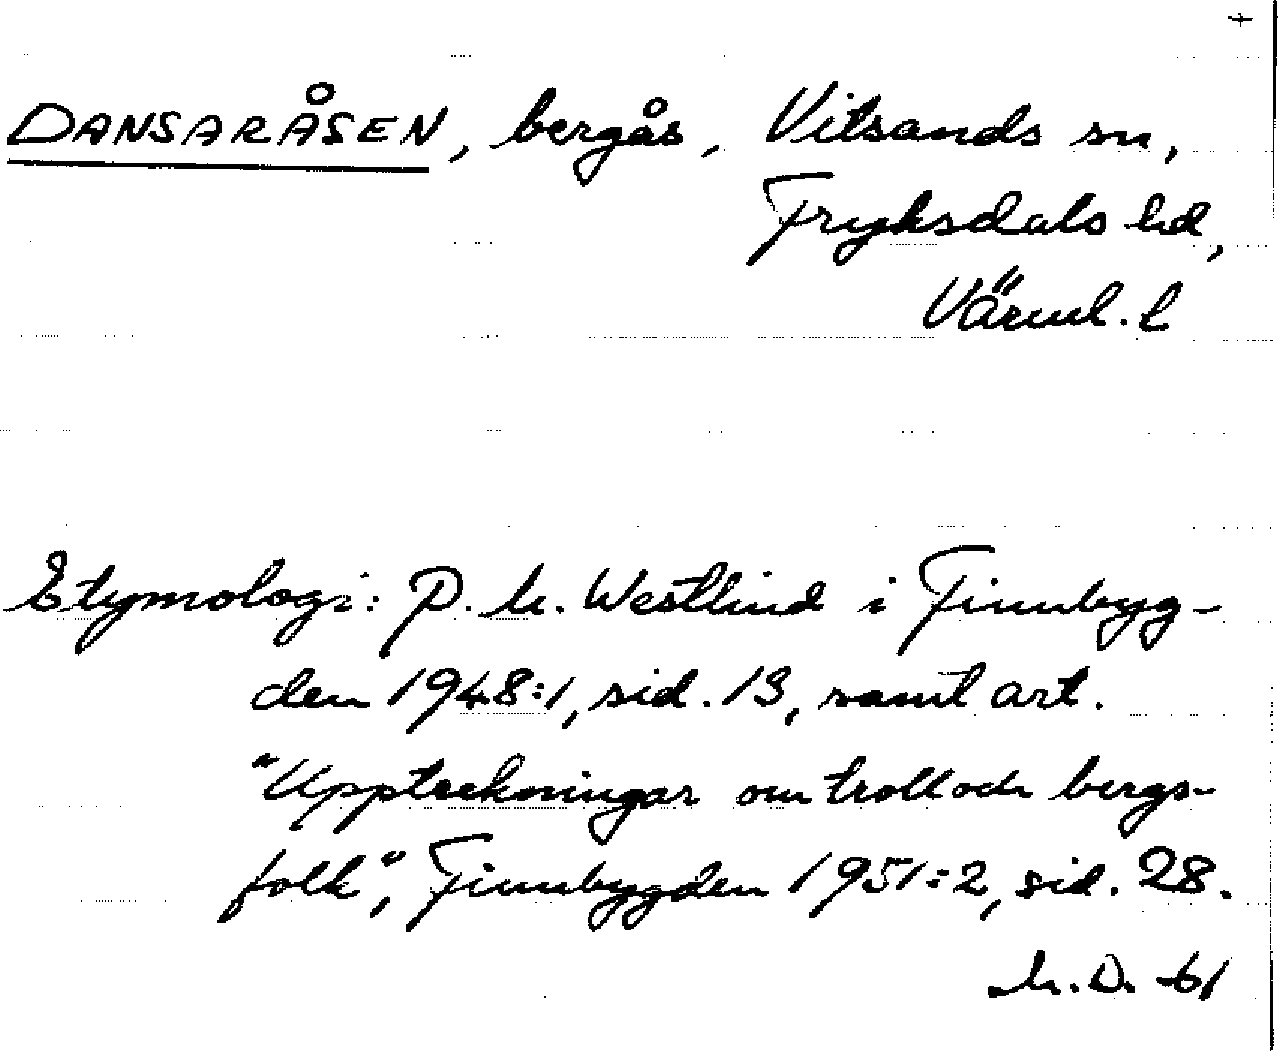 DANSARÅSEN, bergås, Vitsands sn,
Fryksdals hd,
Värml. l
Etymologi: P. M. Westlind i Finnbyg-
den 1948:1, sid. 13, samt art.
"Uppteckningar om troll och bergs-
folk", Finnbygden 1951:2, sid. 28.
M. D. -61